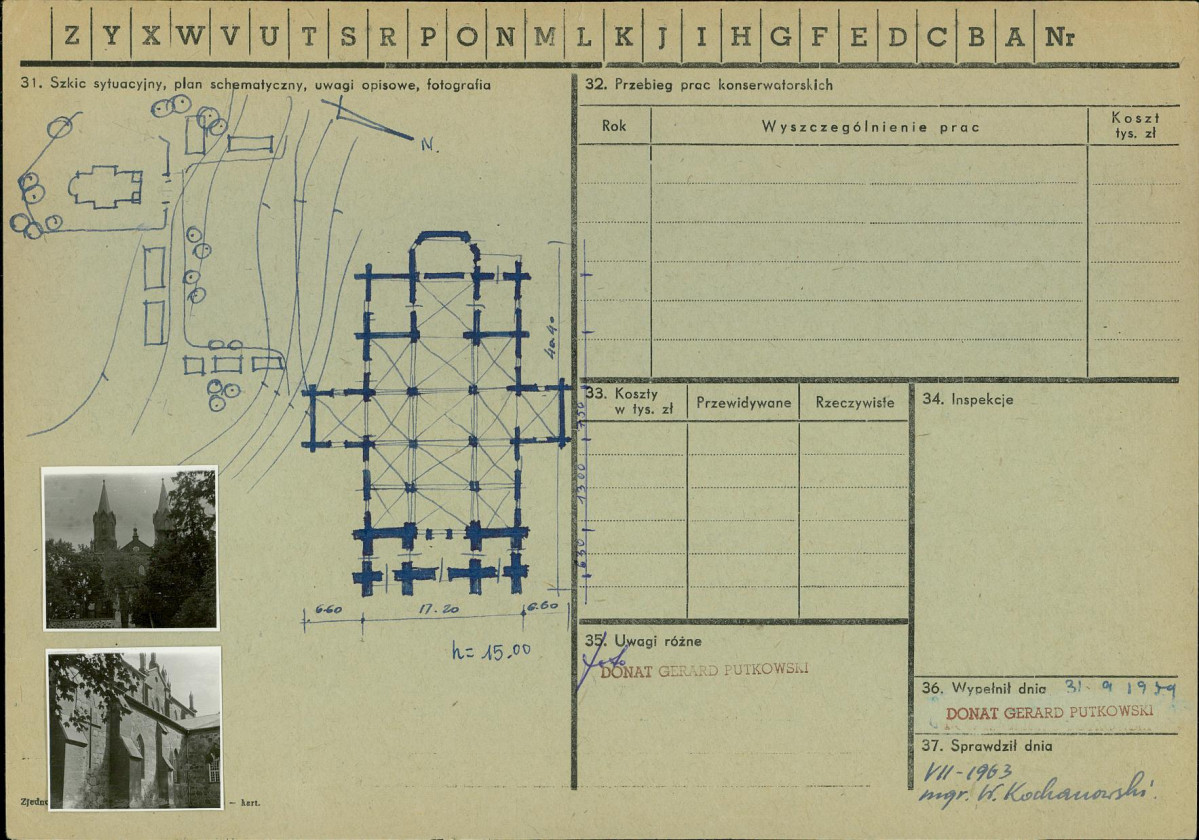 Z Y X W V U T S R P O N M L K J I H G F E D C B A Nr
31. Szkic sytuacyjny, plan schematyczny, uwagi opisowe, fotografia
N.
40.40
7.50
13.00
6.30
6.60 17.20 6.60
h= 15.00
32. Przebieg prac konserwatorskich
Rok Wyszczególnienie prac Koszt tys. zł
33. Koszty w tys. zł Przewidywane Rzeczywiste
34. Inspekcje
35. Uwagi różne
foto
DONAT GERARD PUTKOWSKI
36. Wypełnił dnia 31. 9 1959
DONAT GERARD PUTKOWSKI
37. Sprawdził dnia
VII - 1963
mgr. W. Kochanowski.
– kart.